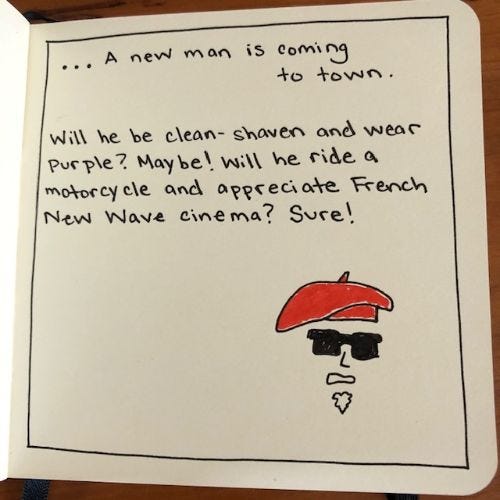 ... A new man is coming
to town.
Will he be clean-shaven and wear
purple? Maybe! Will he ride a
motorcycle and appreciate French
New Wave cinema? Sure!